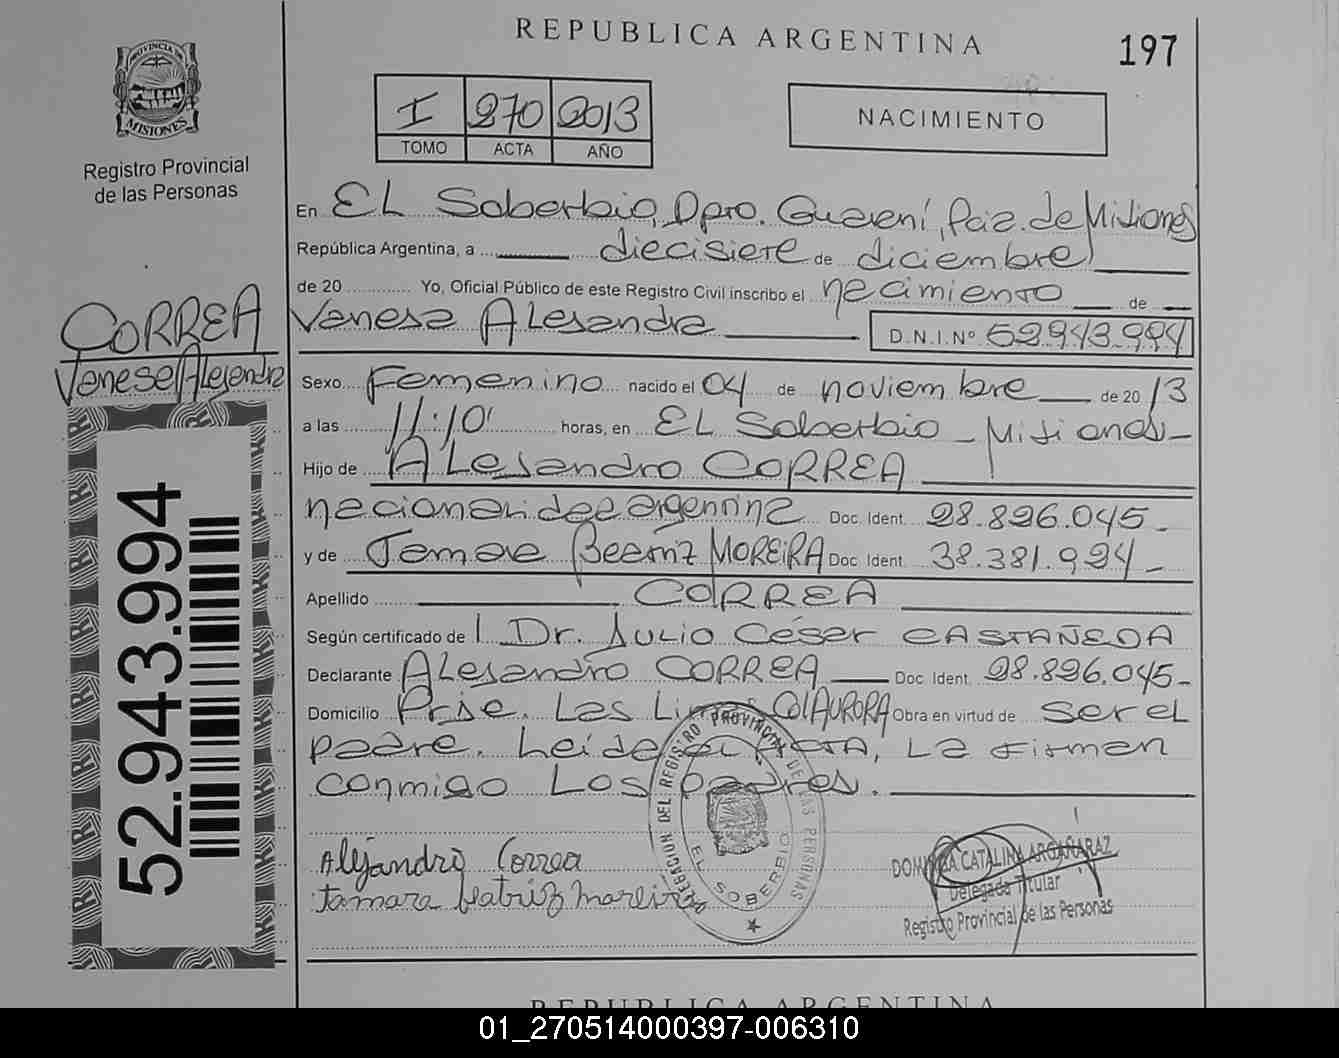 REPUBLICA ARGENTINA
197
PROVINCIA DE
MISIONES
Registro Provincial
de las Personas
I 270 2013
TOMO ACTA AÑO
NACIMIENTO
En EL Soberbio, Dpto. Guaraní, Pcia. de Misiones
República Argentina, a diecisiete de diciembre
de 20 Yo, Oficial Público de este Registro Civil inscribo el nacimiento de
Vanesa ALejandra D.N.I.Nº 52.943.994
CORREA
Vanesa Alejandra
Sexo Femenino nacido el 04 de noviembre de 2013
a las 11:10' horas, en EL Soberbio - Misiones -
Hijo de ALejandro CORREA
nacionalidad argentina Doc. Ident. 28.826.045 -
y de Tamara Beatriz MOREIRA Doc Ident. 38.381.924 -
Apellido CORREA
Según certificado de Dr. Julio César CASTAÑEDA
Declarante ALejandro CORREA Doc Ident. 28.826.045 -
Domicilio Pje. Las Limas Col AURORA Obra en virtud de ser el
padre. Leída el Acta, La firman
conmigo Los padres.
Alejandro Correa
Tamara beatriz moreira
DELEGACION DEL REGISTRO PROVINCIAL DE LAS PERSONAS
EL SOBERBIO
DOMINGA CATALINA ARGAÑARAZ
Delegada Titular
Registro Provincial de las Personas
52.943.994
REPUBLICA ARGENTINA
01_270514000397-006310